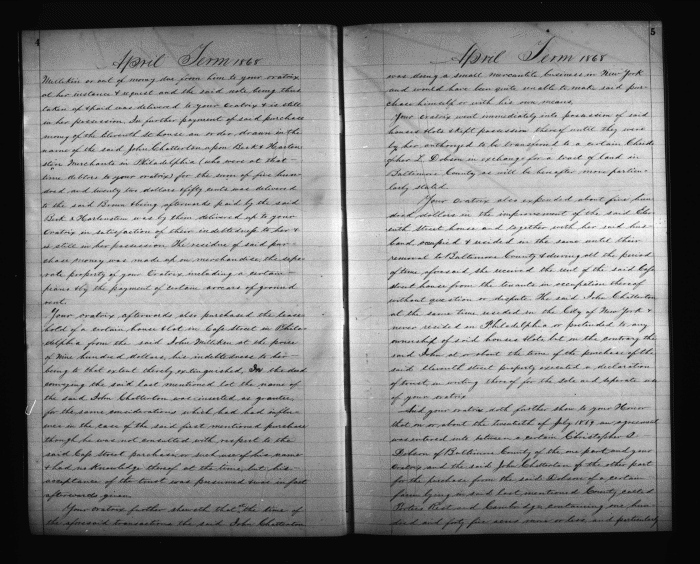 4
April Term 1868
Milliken or out of money due from him to your oratrix
at her instance & request and the said note being thus
taken up & paid was delivered to your Oratrix & is still
in her possession. In further payment of said purchase
money of the Eleventh St house an order drawn in the
name of the said John Chatterton upon Beck &
Merchants in Philadelphia (who were at that
time debtors to your oratrix) for the sum of five hun-
dred and twenty two dollars & fifty cents was delivered
to the said & being afterwards paid by the said
Beck & was by them delivered up to your
Oratrix in satisfaction of their indebtedness to her &
is still in her possession. The residue of said pur-
chase money was made up in merchandise the sepa-
rate property of your Oratrix including a certain
piano & by the payment of certain arrears of ground
rent.
Your oratrix afterwards also purchased the lease
hold of a certain house & lot in Street in Phila-
delphia from the said John Milliken at the price
of Nine hundred dollars, his indebtedness to her
being to that extent thereby extinguished, In the deed
conveying the said last mentioned lot the name of
the said John Chatterton was inserted as grantee,
for the same considerations which had had influ-
ence in the case of the first mentioned purchase
though he was not consulted with respect to the
said Street purchase, or such use of his name
& had no knowledge thereof at the time, but his
acceptance of the trust was presumed & was in fact
afterwards given.
Your oratrix further sheweth that at the time of
the aforesaid transactions the said John Chatterton
5
April Term 1868
was doing a small mercantile business in New York
and would have been quite unable to make said pur-
chase himself or with his own means,
Your oratrix went immediately into possession of said
houses & lots & kept possession thereof until they were
by her authorized to be transferred to a certain Christo-
pher L Dobson in exchange for a tract of land in
Baltimore County as will be hereafter more particu-
larly stated.
Your Oratrix also expended about five hun-
dred dollars in the improvement of the said Elev-
enth Street house and together with her said hus-
band occupied & resided in the same until their
removal to Baltimore County & during all the period
of time aforesaid she received the rent of the said
Street house from the tenants in occupation thereof
without question or dispute. The said John Chatterton
at the same time resided in the City of New York &
never resided in Philadelphia or pretended to any
ownership of said houses & lots but on the contrary the
said John at or about the time of the purchase of the
said Eleventh street property executed a declaration
of trust in writing thereof for the sole and separate use
of your oratrix
And your oratrix doth further show to your Honor
that on or about the twentieth of July 1859 an agreement
was entered into between a certain Christopher L
Dobson of Baltimore County of the one part and your
Oratrix and the said John Chatterton of the other part
for the purchase from the said Dobson of a certain
farm lying in said last mentioned County called
Rest and containing one hun-
dred and forty five acres more or less and particularly